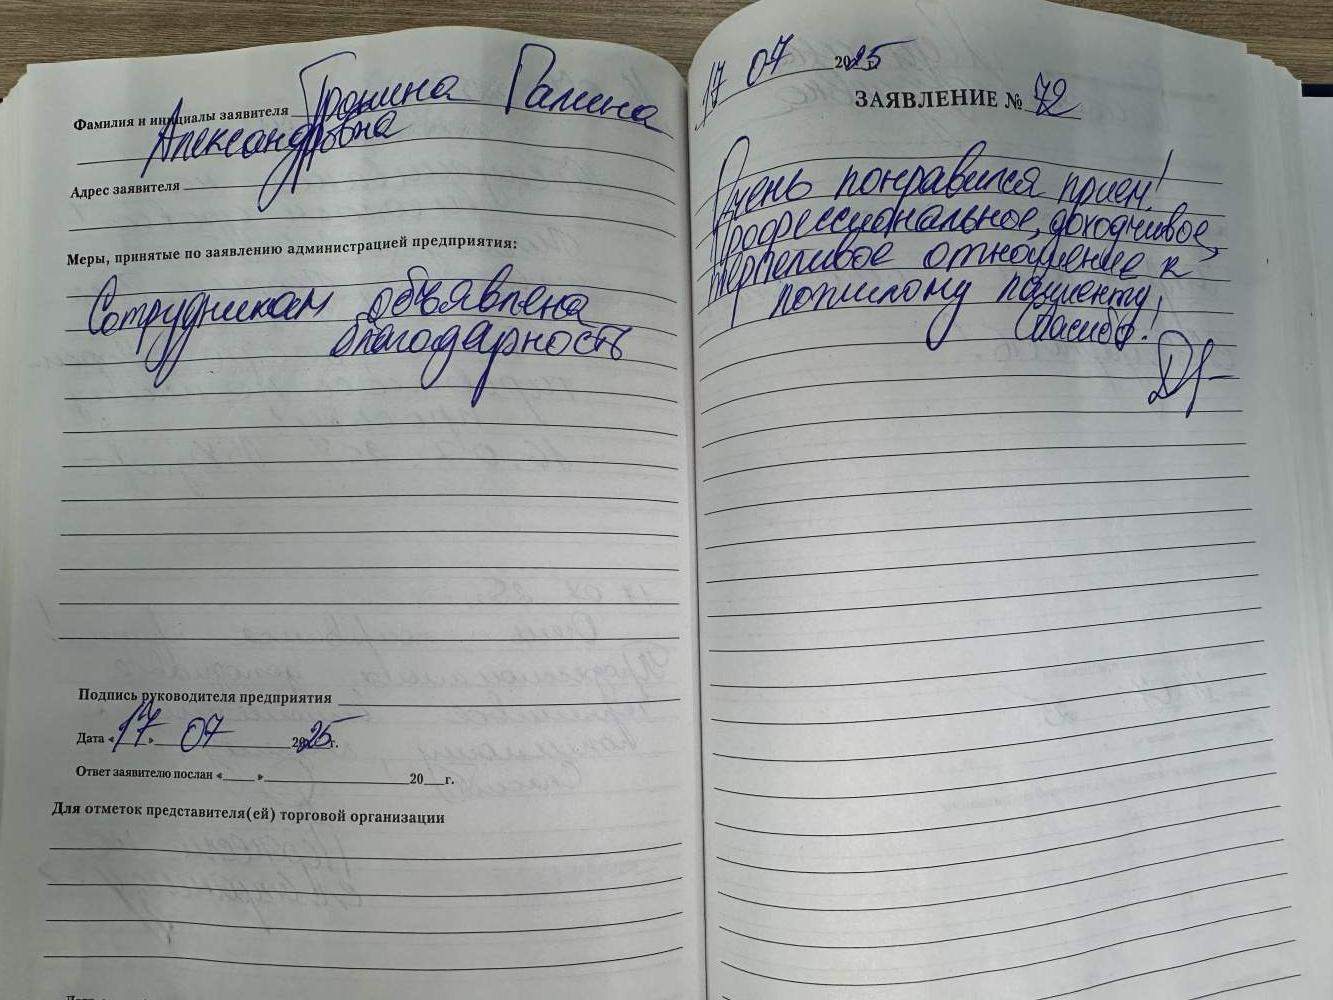 Фамилия и инициалы заявителя Пронина Галина
Александровна
Адрес заявителя
Меры, принятые по заявлению администрацией предприятия:
Сотрудникам объявлена
благодарность
Подпись руководителя предприятия
Дата « 17 » 07 2025 г.
Ответ заявителю послан «____ »____________________20___г.
Для отметок представителя(ей) торговой организации
17 07 2025
ЗАЯВЛЕНИЕ № 72
Очень понравился прием!
Профессиональное, доходчивое,
терпеливое отношение к
пожилому пациенту,
Спасибо!